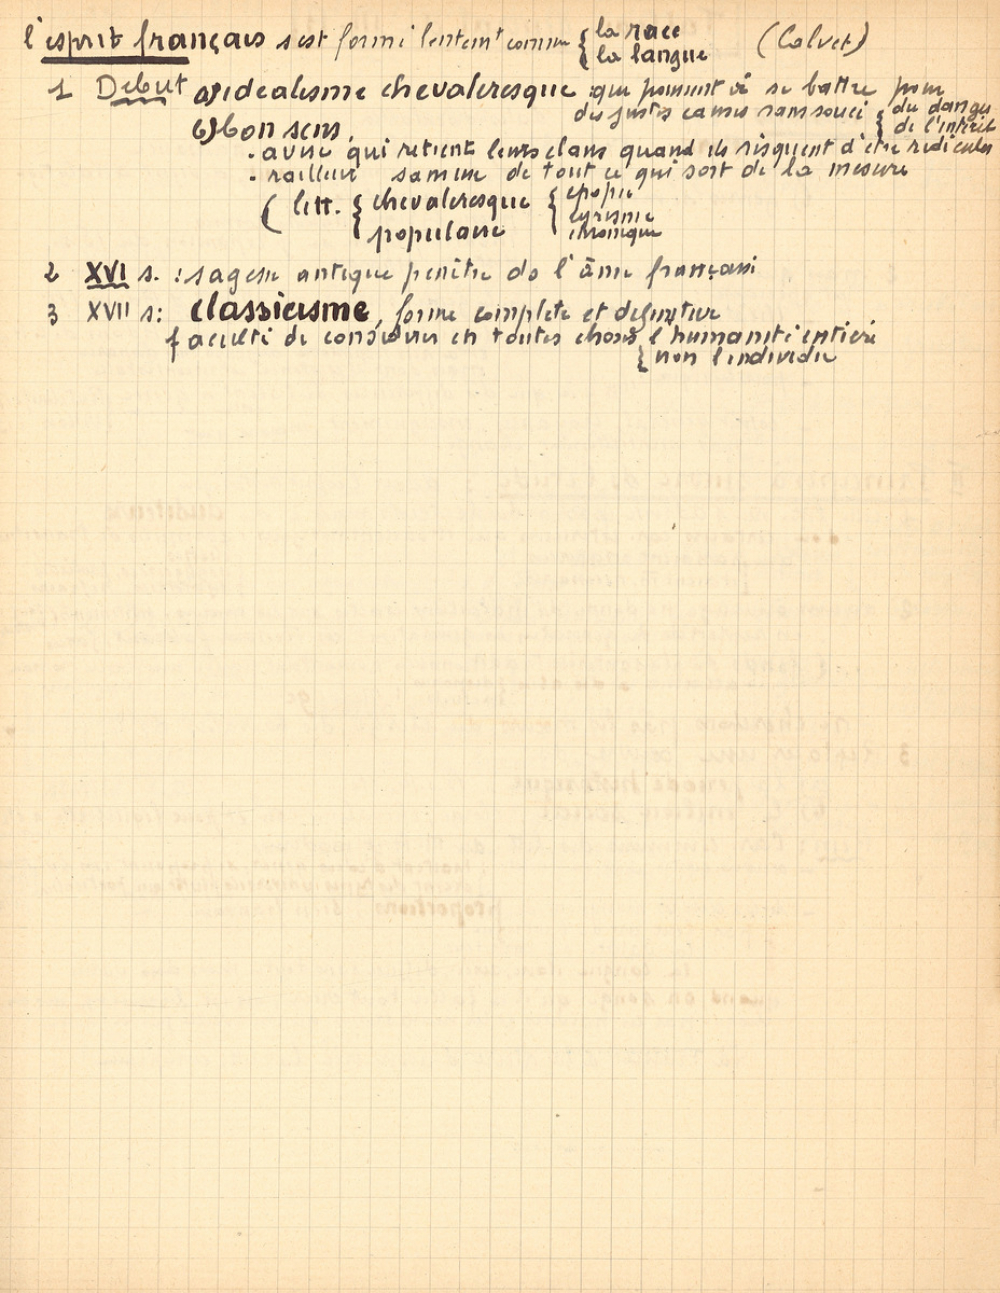 l'esprit français s'est formé lentemt comme { la race (Calvet)
la langue
1 Début a) idealisme chevaleresque qui poussent à se battre pour
des justes causes sans souci { du danger
de l'intérêt
b) bon sens.
. avisé qui retient leurs élans quand ils risquent d'être ridicules
. railleur s'amuse de tout ce qui sort de la mesure
( litt. { chevaleresque { épopée
lyrisme
populaire chronique
2 XVI s. : sagesse antique penètre do l'âme français
3 XVII s: classicisme, forme complète et définitive
faculté de considérer en toutes choses, l'humanité entière
{ non l'individu